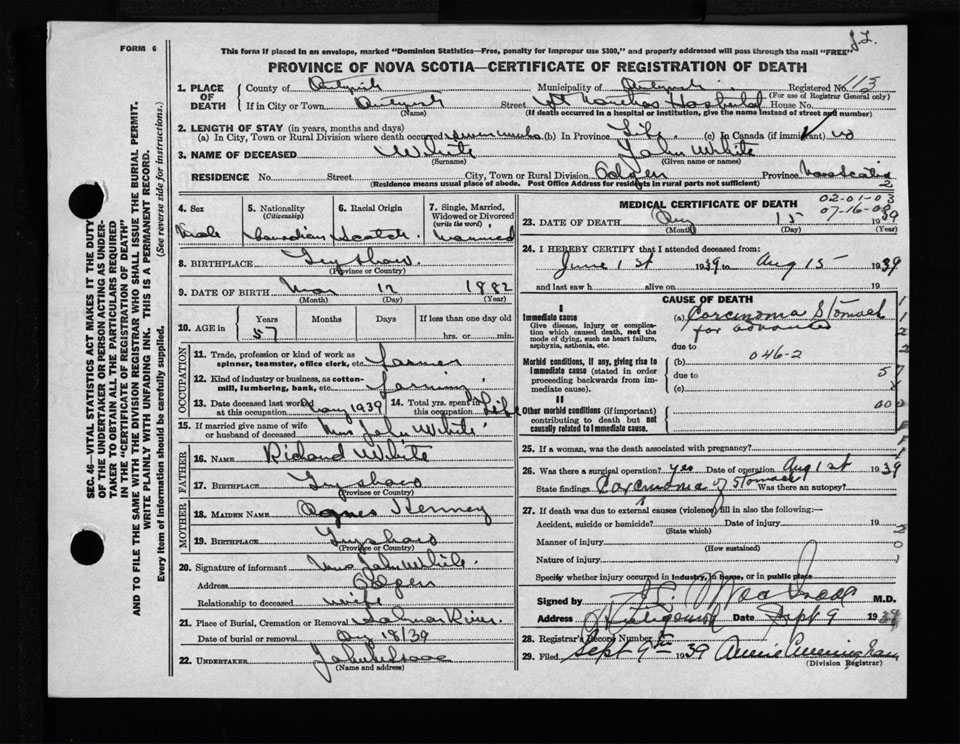 J.L.
FORM 6
This form if placed in an envelope, marked "Dominion Statistics—Free, penalty for improper use $300," and properly addressed will pass through the mail "FREE"
PROVINCE OF NOVA SCOTIA—CERTIFICATE OF REGISTRATION OF DEATH
SEC. 46—VITAL STATISTICS ACT MAKES IT THE DUTY
OF THE UNDERTAKER OR PERSON ACTING AS UNDER-
TAKER TO OBTAIN ALL THE PARTICULARS REQUIRED
IN THE "CERTIFICATE OF REGISTRATION OF DEATH"
AND TO FILE THE SAME WITH THE DIVISION REGISTRAR WHO SHALL ISSUE THE BURIAL PERMIT.
WRITE PLAINLY WITH UNFADING INK. THIS IS A PERMANENT RECORD.
Every item of information should be carefully supplied. (See reverse side for instructions.)
1. PLACE OF DEATH County of Municipality of Registered No. 113
(For use of Registrar General only)
If in City or Town Street Hospital House No.
(Name) (If death occurred in a hospital or institution, give the name instead of street and number)
2. LENGTH OF STAY (in years, months and days)
(a) In City, Town or Rural Division where death occurred (b) In Province Life (c) In Canada (if immigrant)
3. NAME OF DECEASED White John White
(Surname) (Given name or names)
RESIDENCE No. Street City, Town or Rural Division Province Nova Scotia
(Residence means usual place of abode. Post Office Address for residents in rural parts not sufficient) 2
4. Sex 5. Nationality (Citizenship) 6. Racial Origin 7. Single, Married, Widowed or Divorced (write the word)
Male Canadian Scotch Married
8. BIRTHPLACE
(Province or Country)
9. DATE OF BIRTH Mar 12 1882
(Month) (Day) (Year)
10. AGE in Years Months Days If less than one day
57 hrs. or min.
OCCUPATION
11. Trade, profession or kind of work as spinner, teamster, office clerk, etc. Farmer
12. Kind of industry or business, as cotton-mill, lumbering, bank, etc. Farming
13. Date deceased last worked at this occupation May 1939 14. Total yrs. spent in this occupation Life
15. If married give name of wife or husband of deceased Mrs John White
FATHER
16. NAME White
17. BIRTHPLACE
(Province or Country)
MOTHER
18. MAIDEN NAME Agnes
19. BIRTHPLACE
(Province or Country)
20. Signature of informant Mrs John White
Address
Relationship to deceased wife
21. Place of Burial, Cremation or Removal Salmon River
Date of burial or removal 18/39
22. UNDERTAKER John
(Name and address)
MEDICAL CERTIFICATE OF DEATH 02-01-03
07-16-
23. DATE OF DEATH Aug 15 1939
(Month) (Day) (Year)
24. I HEREBY CERTIFY that I attended deceased from:
June 1st 1939 to Aug 15 1939
and last saw h alive on 19
CAUSE OF DEATH
I
Immediate cause (a) Carcinoma Stomach
Give disease, injury or complication which caused death, not the mode of dying, such as heart failure, asphyxia, asthenia, etc. far advanced
due to
Morbid conditions, if any, giving rise to immediate cause (stated in order proceeding backwards from immediate cause). (b) 046-2
due to
(c)
II
Other morbid conditions (if important) contributing to death but not causally related to immediate cause.
25. If a woman, was the death associated with pregnancy?
26. Was there a surgical operation? yes Date of operation Aug 1st 1939
State findings Carcinoma of Stomach Was there an autopsy?
27. If death was due to external causes (violence) fill in also the following:—
Accident, suicide or homicide? Date of injury 19
(State which)
Manner of injury
(How sustained)
Nature of injury
Specify whether injury occurred in industry, in home, or in public place
Signed by M.D.
Address Antigonish Date Sept 9 1939
28. Registrar's Record Number
29. Filed Sept 9th 1939 Annie Cunningham
(Division Registrar)